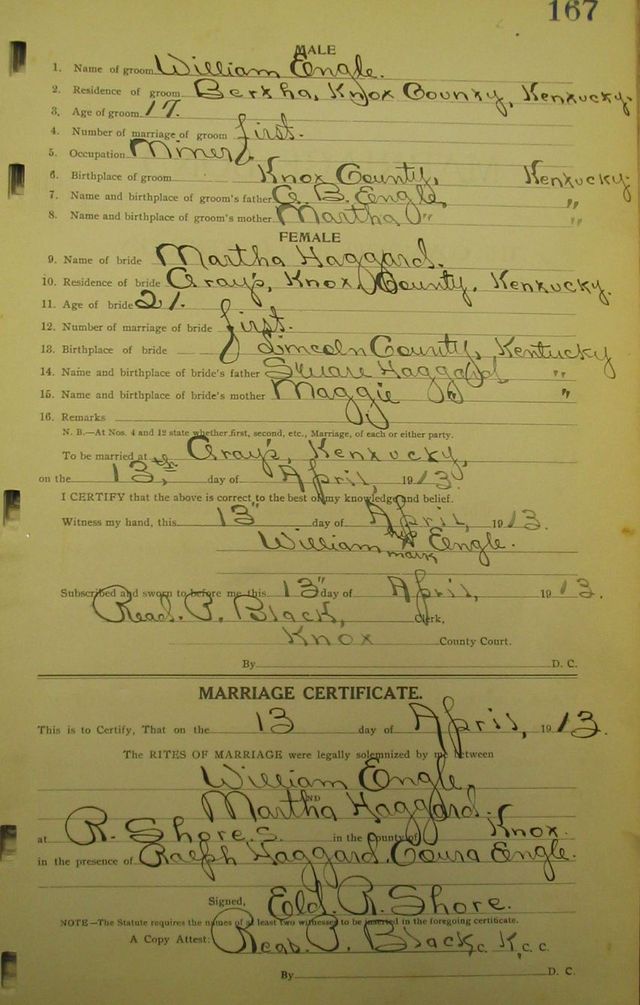 167
MALE
1. Name of groom William Engle.
2. Residence of groom Bertha, Knox County, Kentucky.
3. Age of groom 17.
4. Number of marriage of groom first.
5. Occupation Miner.
6. Birthplace of groom Knox County, Kentucky.
7. Name and birthplace of groom's father B. Engle, "
8. Name and birthplace of groom's mother Martha " "
FEMALE
9. Name of bride Martha Haggard.
10. Residence of bride Gray's, Knox County, Kentucky.
11. Age of bride 21.
12. Number of marriage of bride first.
13. Birthplace of bride Lincoln County, Kentucky
14. Name and birthplace of bride's father Square Haggard "
15. Name and birthplace of bride's mother Maggie " "
16. Remarks
N. B.—At Nos. 4 and 12 state whether first, second, etc., Marriage, of each or either party.
To be married at Gray's, Kentucky,
on the 13th, day of April, 1913.
I CERTIFY that the above is correct to the best of my knowledge and belief.
Witness my hand, this 13" day of April, 1913.
William his X mark Engle.
Subscribed and sworn to before me this 13" day of April, 1913.
Read. P. Black, Clerk,
Knox County Court.
By D. C.
MARRIAGE CERTIFICATE.
This is to Certify, That on the 13 day of April, 1913.
The RITES OF MARRIAGE were legally solemnized by me between
William Engle,
AND
Martha Haggard.
at R. Shore.s in the County of Knox.
in the presence of Ralph Haggard. Engle.
Signed, Eld. R. Shore.
NOTE—The Statute requires the names of at least two witnesses to be inserted in the foregoing certificate.
A Copy Attest: Read. P. Black, C. K, C. C.
By D. C.